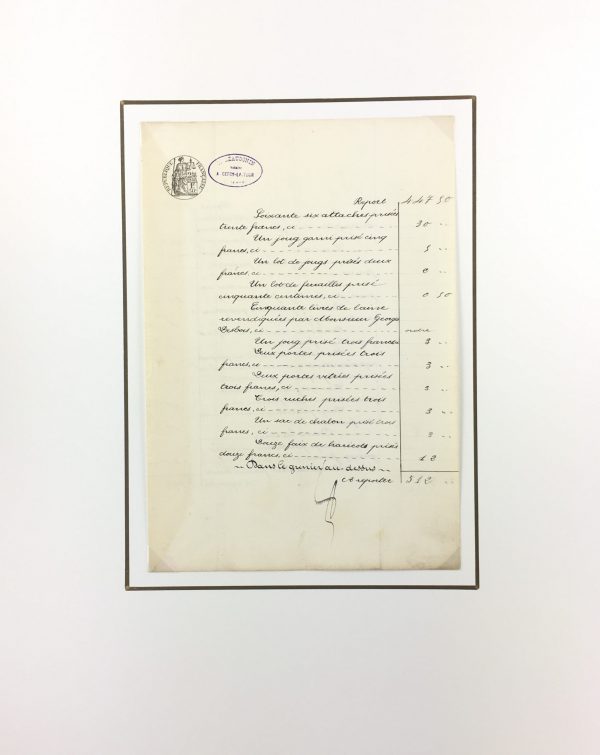 RÉPUBLIQUE FRANÇAISE
Report 447 50
Soixante six attaches prisées
trente francs, ci 30 "
Un joug garni prisé cinq
francs, ci 5 "
Un lot de jougs prisés deux
francs, ci "
Un lot de feuailles prisé
cinquante centimes, ci 0 50
Cinquante livres de laine
revendiquées par Monsieur George
Lesbois, ci
Un joug prisé trois francs 3 "
Deux portes prisées trois
francs, ci 3 "
Deux portes vitrées prisées
trois francs, ci 3 "
Trois ruches prisées trois
francs, ci 3 "
Un sac de chalon prisé trois
francs, ci 3 "
Douze faix de haricots prisés
douze francs, ci 12
Dans le grenier au-dessus
A reporter 512 "